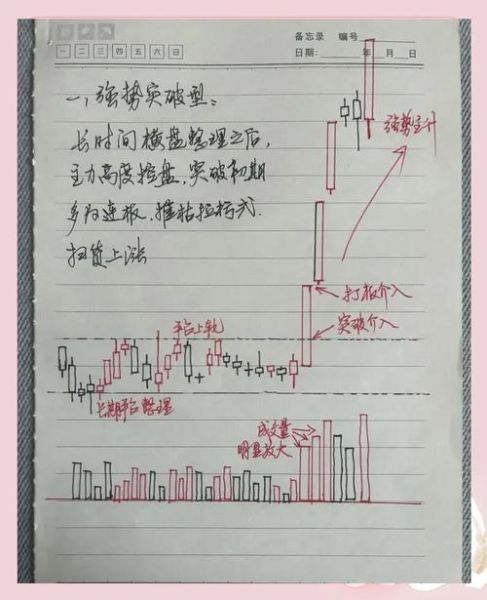 备忘录 编号
一 二 三 四 五 六 日
日期: 年 月 日
一、强势突破型:
长时间横盘整理之后,
主力高度控盘,突破初期
多为连板,推枯拉朽式
扫货上涨
强势主升
打板介入
突破介入
平台上轨
长期平台整理
成交量
明显放大